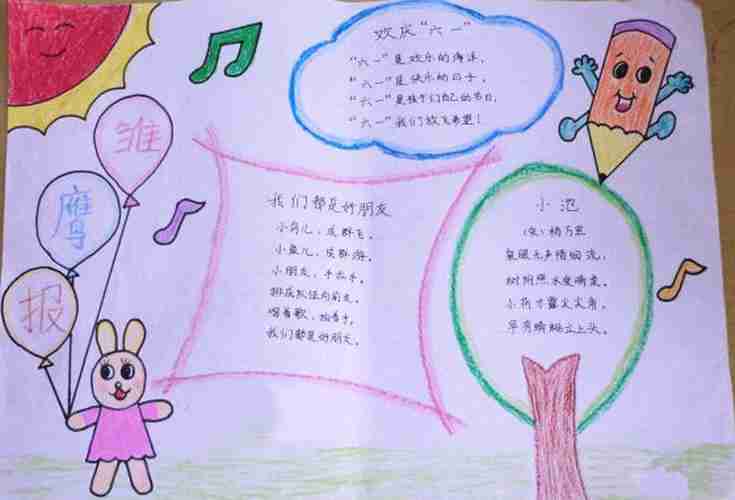 雏
鹰
报
欢庆“六一”
“六一”是欢乐的海洋,
“六一”是快乐的日子,
“六一”是孩子们自己的节日,
“六一”我们放飞希望!
我们都是好朋友
小鸟儿,成群飞。
小鱼儿,成群游。
小朋友,手拉手。
排成队伍向前走。
唱着歌,拍着手。
我们都是好朋友。
小池
(宋)杨万里
泉眼无声惜细流,
树阴照水爱晴柔。
小荷才露尖尖角,
早有蜻蜓立上头。